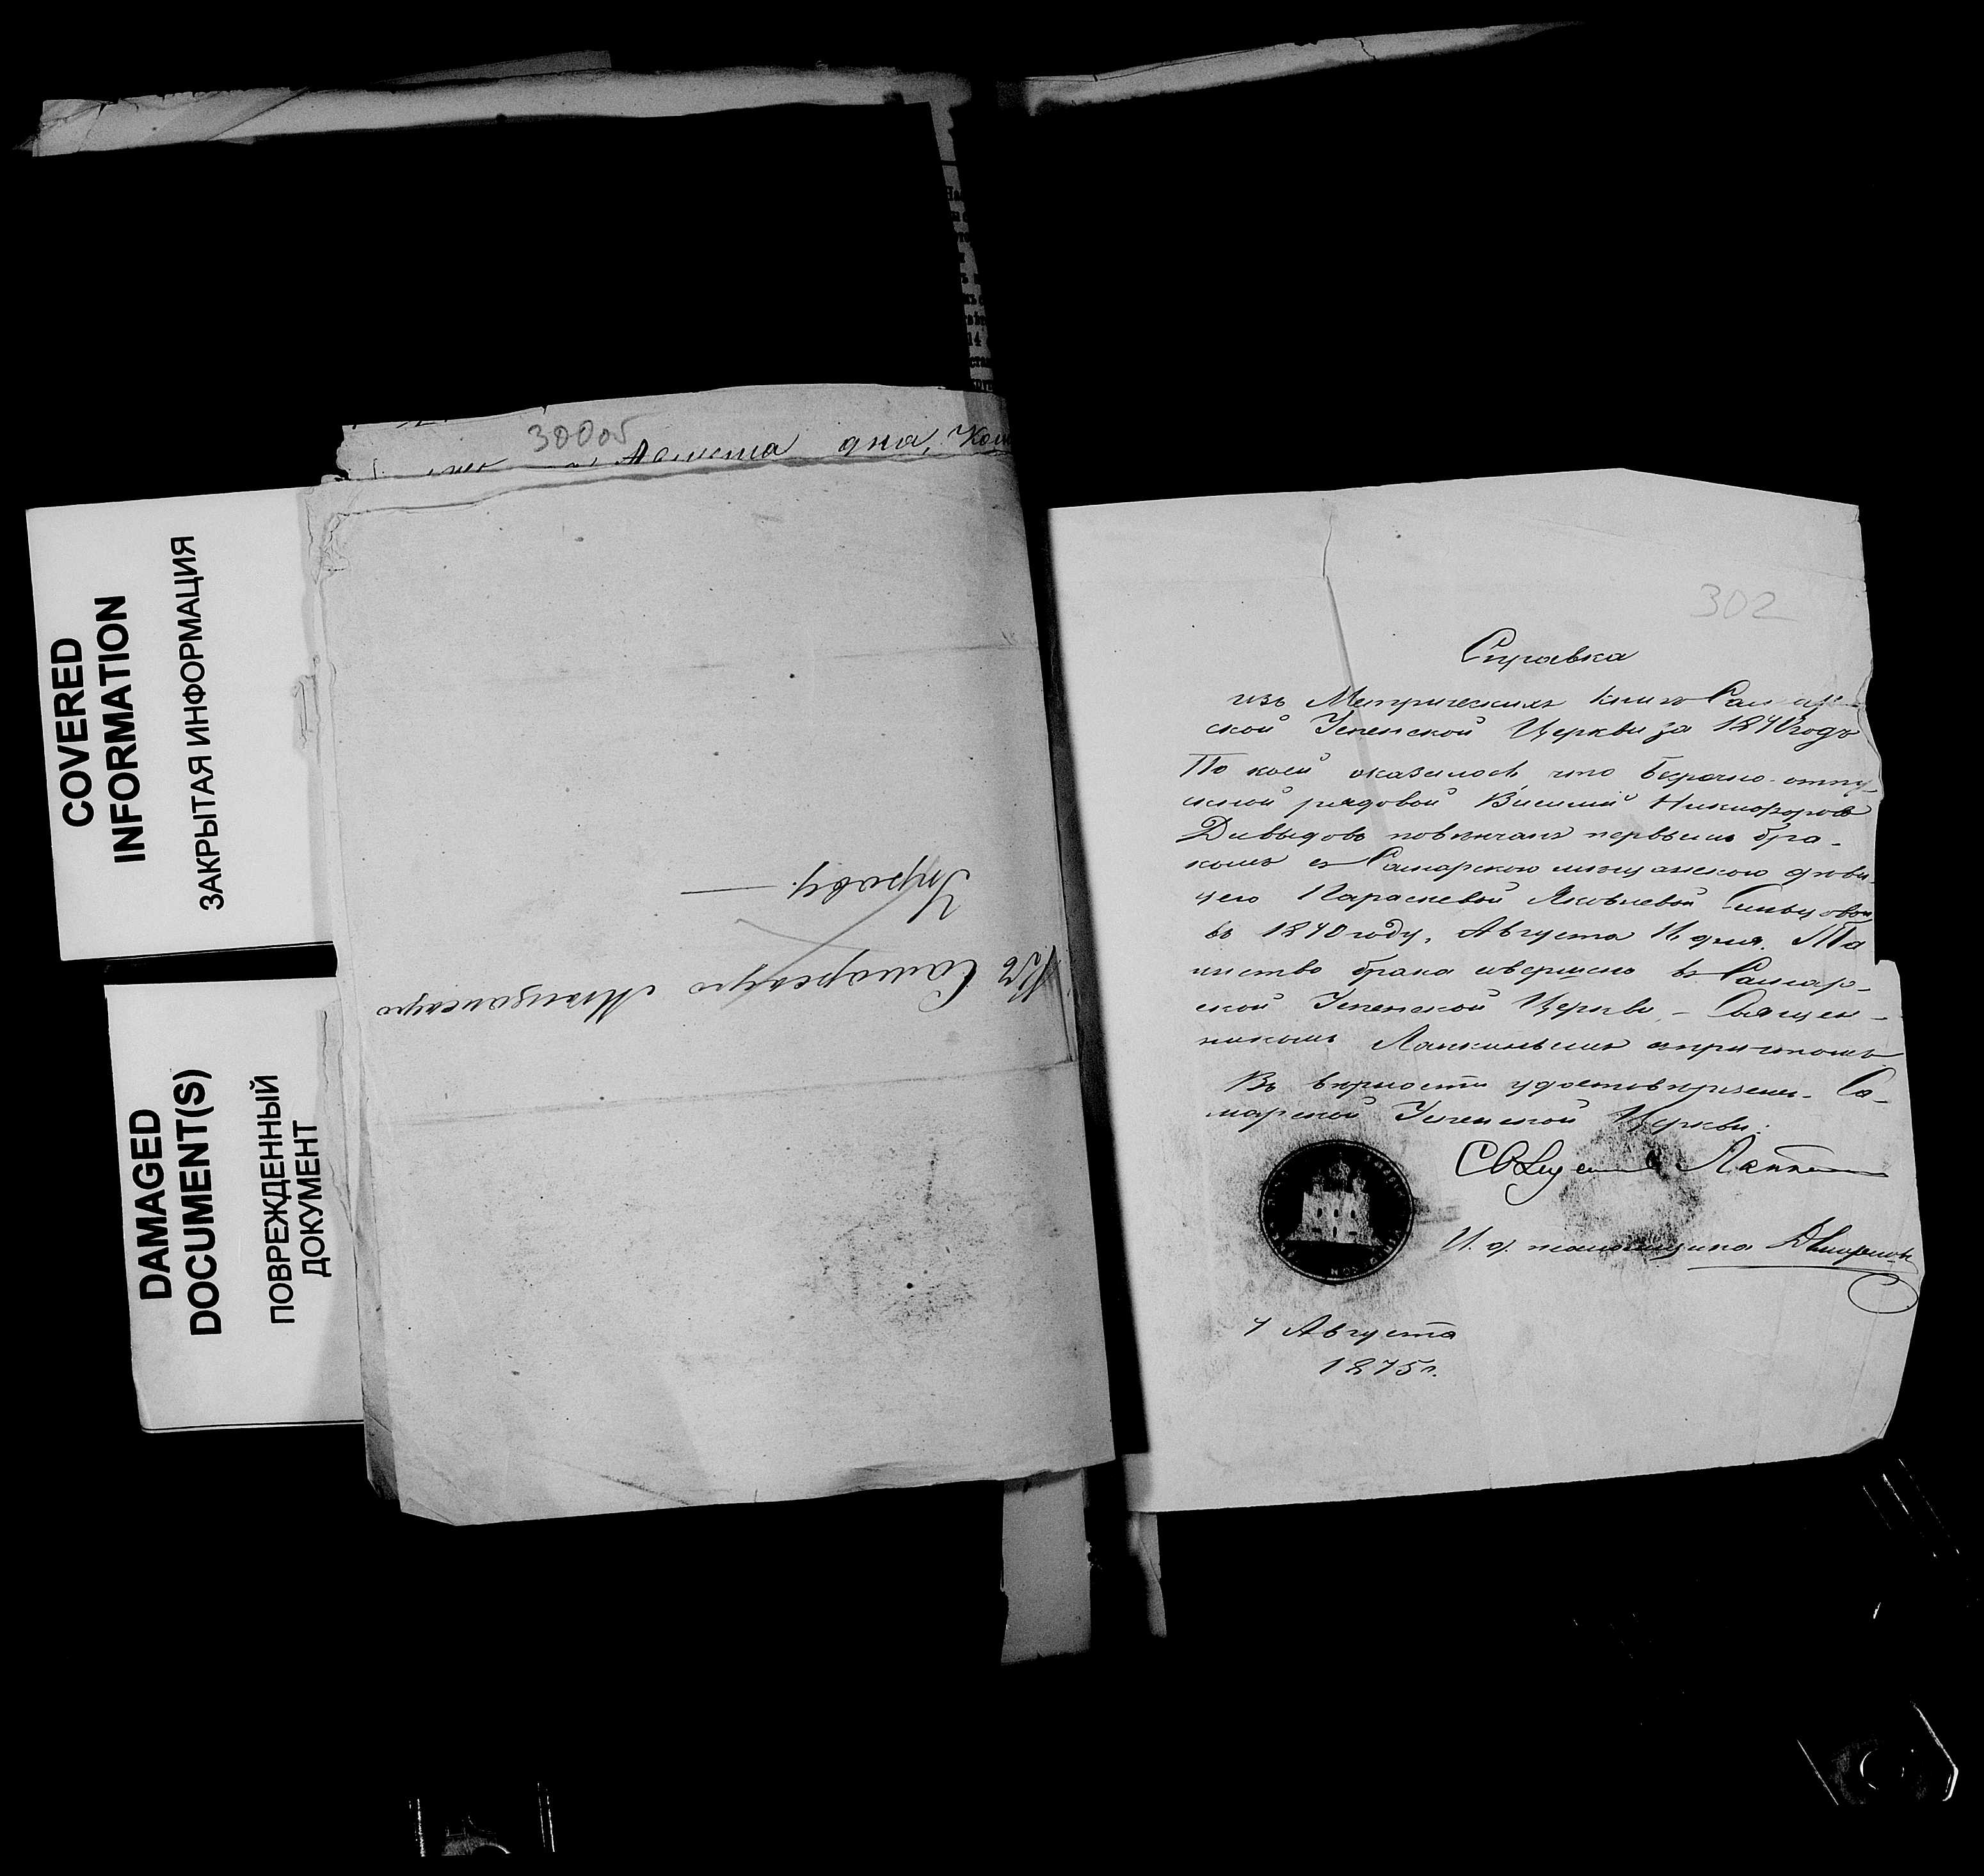 COVERED
INFORMATION
ЗАКРЫТАЯ ИНФОРМАЦИЯ
DAMAGED
DOCUMENT(S)
ПОВРЕЖДЕННЫЙ
ДОКУМЕНТ
300об
Августа дня,
Въ Самарскую Мѣщанскую
Управу.
302
Справка
изъ Метрическихъ книгъ Самар-
ской Успенской Церкви за 1870 годъ
По коей оказалось что безсрочно-отпу-
скной рядовой Василий Никифоровъ
Давыдовъ повѣнчанъ первымъ бра-
комъ съ Самарскою мѣщанскою дѣви-
цею Параскевой Яковлевой
въ 1870 году, Августа 16 дня. Та
инство брака совершено въ Самар-
ской Успенской Церкви - Священ-
никомъ съ причтомъ
Въ вѣрности удостовѣряемъ. Са-
марской Успенской Церкви:
Священникъ
И. д. псаломщика
7 Августа
1875 г.